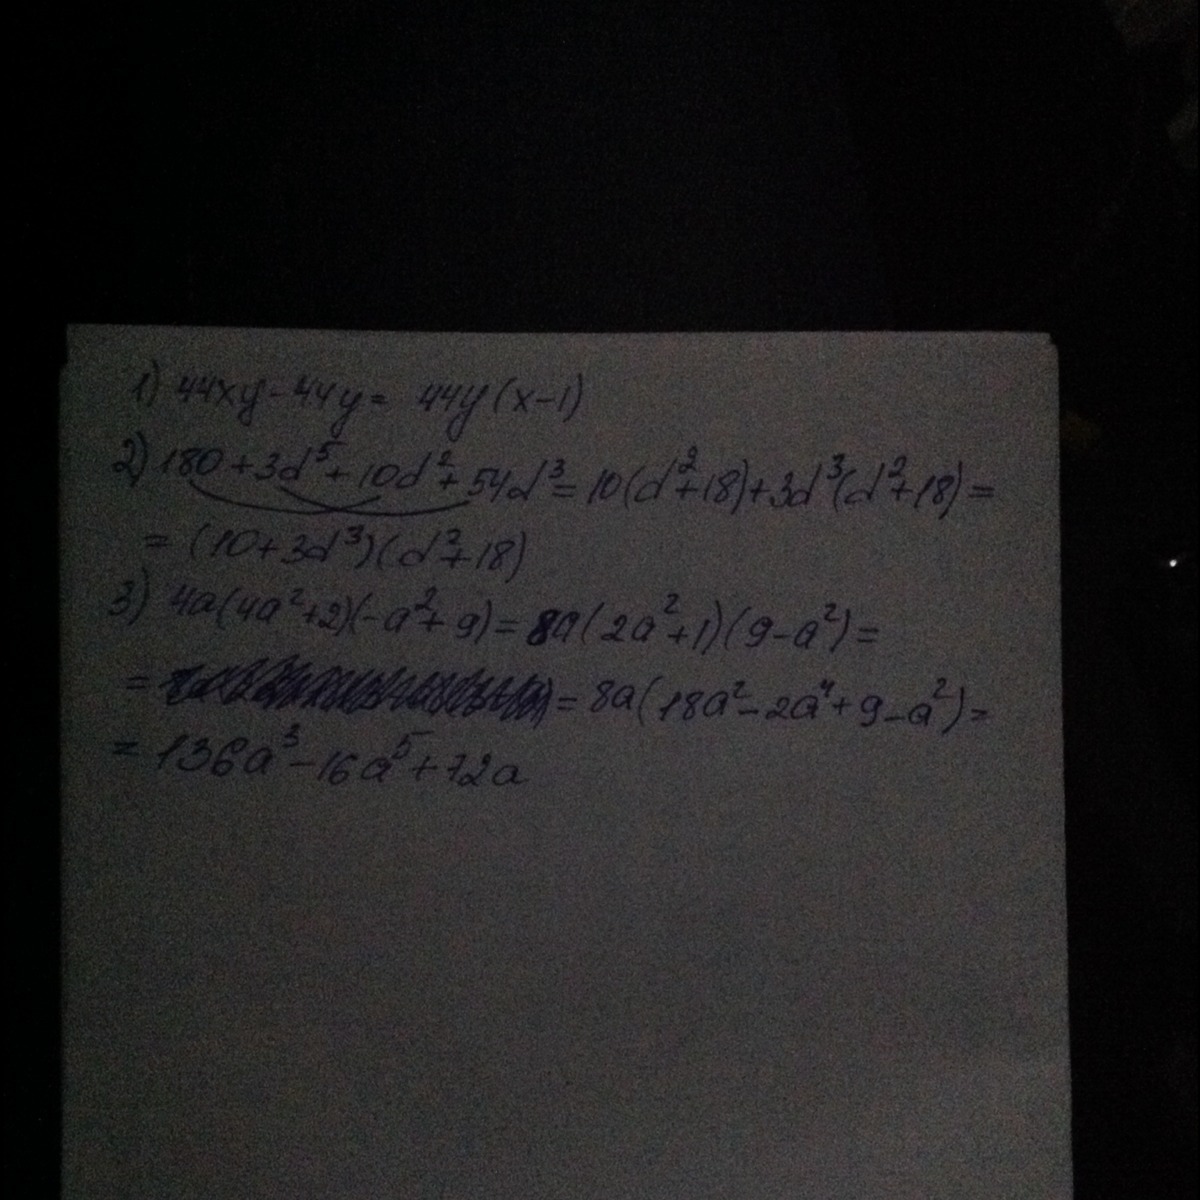 1) 44xy - 44y = 44y(x-1)
2) 180 + 3d⁵ + 10d² + 54d³ = 10(d²+18) + 3d³(d²+18) =
= (10+3d³)(d²+18)
3) 4a(4a²+2)(-a²+9) = 8a(2a²+1)(9-a²) =
= = 8a(18a² - 2a⁴ + 9 - a²) =
= 136a³ - 16a⁵ + 72a